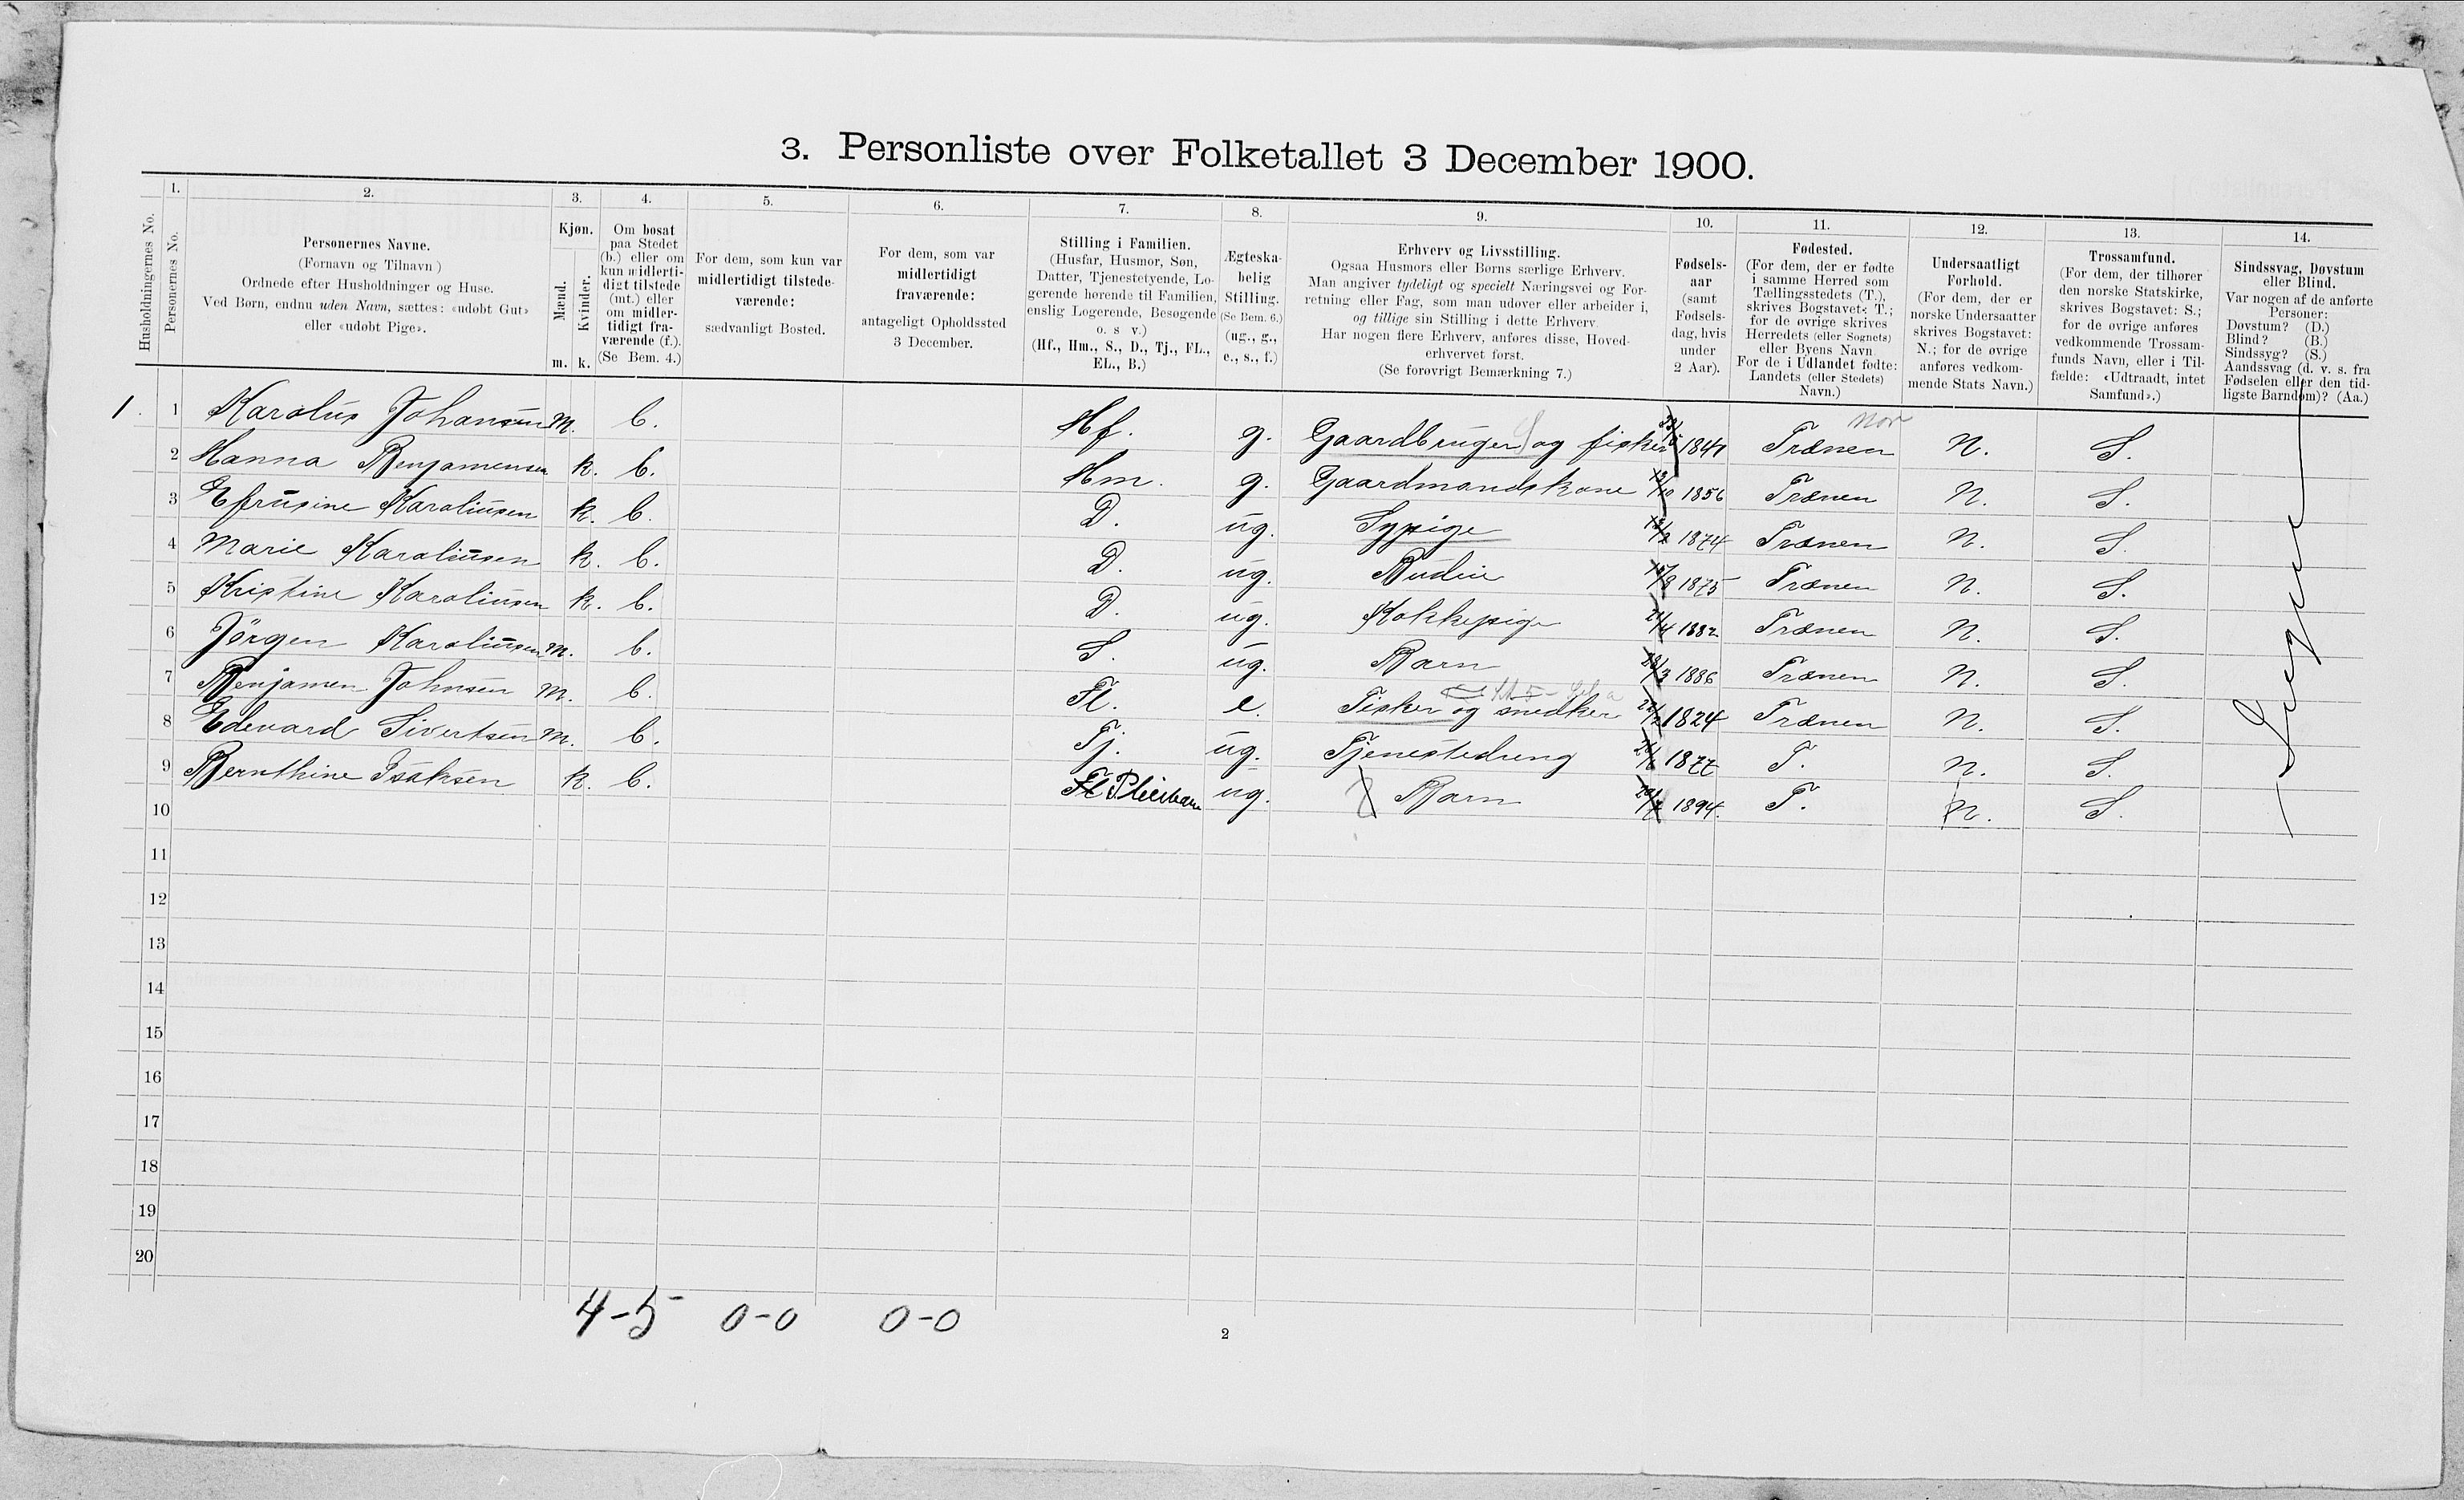 3. Personliste over Folketallet 3 December 1900.
Husholdningernes No.
1.
Personernes No.
2.
Personernes Navne.
(Fornavn og Tilnavn)
Ordnede efter Husholdninger og Huse.
Ved Børn, endnu uden Navn, sættes: «udøbt Gut»
eller «udøbt Pige».
3.
Kjøn.
Mænd.
Kvinder.
m. k.
4.
Om bosat
paa Stedet
(b.) eller om
kun midlerti-
digt tilstede
(mt.) eller
om midler-
tidigt fra-
værende (f.).
(Se Bem. 4.)
5.
For dem, som kun var
midlertidigt tilstede-
værende:
sædvanligt Bosted.
6.
For dem, som var
midlertidigt
fraværende:
antageligt Opholdssted
3 December.
7.
Stilling i Familien.
(Husfar, Husmor, Søn,
Datter, Tjenestetyende, Lo-
gerende hørende til Familien,
enslig Logerende, Besøgende
o. s v.)
(Hf., Hm., S., D., Tj., FL.,
EL., B.)
8.
Ægteska-
belig
Stilling.
(Se Bem. 6.)
(ug., g.,
e., s., f.)
9.
Erhverv og Livsstilling.
Ogsaa Husmors eller Børns særlige Erhverv.
Man angiver tydeligt og specielt Næringsvei og For-
retning eller Fag, som man udøver eller arbeider i,
og tillige sin Stilling i dette Erhverv.
Har nogen flere Erhverv, anføres disse, Hoved-
erhvervet først.
(Se forøvrigt Bemærkning 7.)
10.
Fødsels-
aar
(samt
Fødsels-
dag, hvis
under
2 Aar).
11.
Fødested.
(For dem, der er fødte
i samme Herred som
Tællingsstedets (T.),
skrives Bogstavet: T.;
for de øvrige skrives
Herredets (eller Sognets)
eller Byens Navn
For de i Udlandet fødte:
Landets (eller Stedets)
Navn.)
12.
Undersaatligt
Forhold.
(For dem, der er
norske Undersaatter
skrives Bogstavet:
N.; for de øvrige
anføres vedkom-
mende Stats Navn.)
13.
Trossamfund.
(For dem, der tilhører
den norske Statskirke,
skrives Bogstavet: S.;
for de øvrige anføres
vedkommende Trossam-
funds Navn, eller i Til-
fælde: «Udtraadt, intet
Samfund».)
14.
Sindssvag, Døvstum
eller Blind.
Var nogen af de anførte
Personer:
Døvstum? (D.)
Blind? (B.)
Sindssyg? (S.)
Aandssvag (d. v. s. fra
Fødselen eller den tid-
ligste Barndom)? (Aa.)
Nor
1. 1 Karolus Johansen m. b. Hf. g. Gaardbruger og fisker 1847 Trænen N. S.
2 Hanna Benjamensen k. b. Hm. g. Gaardmandskone 13/10 1856 Trænen N. S.
3 Efrusine Karoliusen k. b. D. ug. Sypige 1874 Trænen N. S.
4 Marie Karoliusen k. b. D. ug. Budeie 1875 Trænen N. S.
5 Kristine Karoliusen k. b. D. ug. Kokkepige 1882 Trænen N. S.
6 Jörgen Karoliusen m. b. S. ug. Barn 1886 Trænen N. S.
7 Benjamen Johnsen m. b. Fl. e. Fisker og snedker 1824 Trænen N. S.
8 Edevard Sivertsen m. b. Tj. ug. Tjenestedreng 1877 T. N. S.
9 Bernthine Isaksen k. b. Fl Pleiebarn ug. Barn 1894. T. N. S.
Ingen
10
11
12
13
14
15
16
17
18
19
20
4-5 0-0 0-0
2